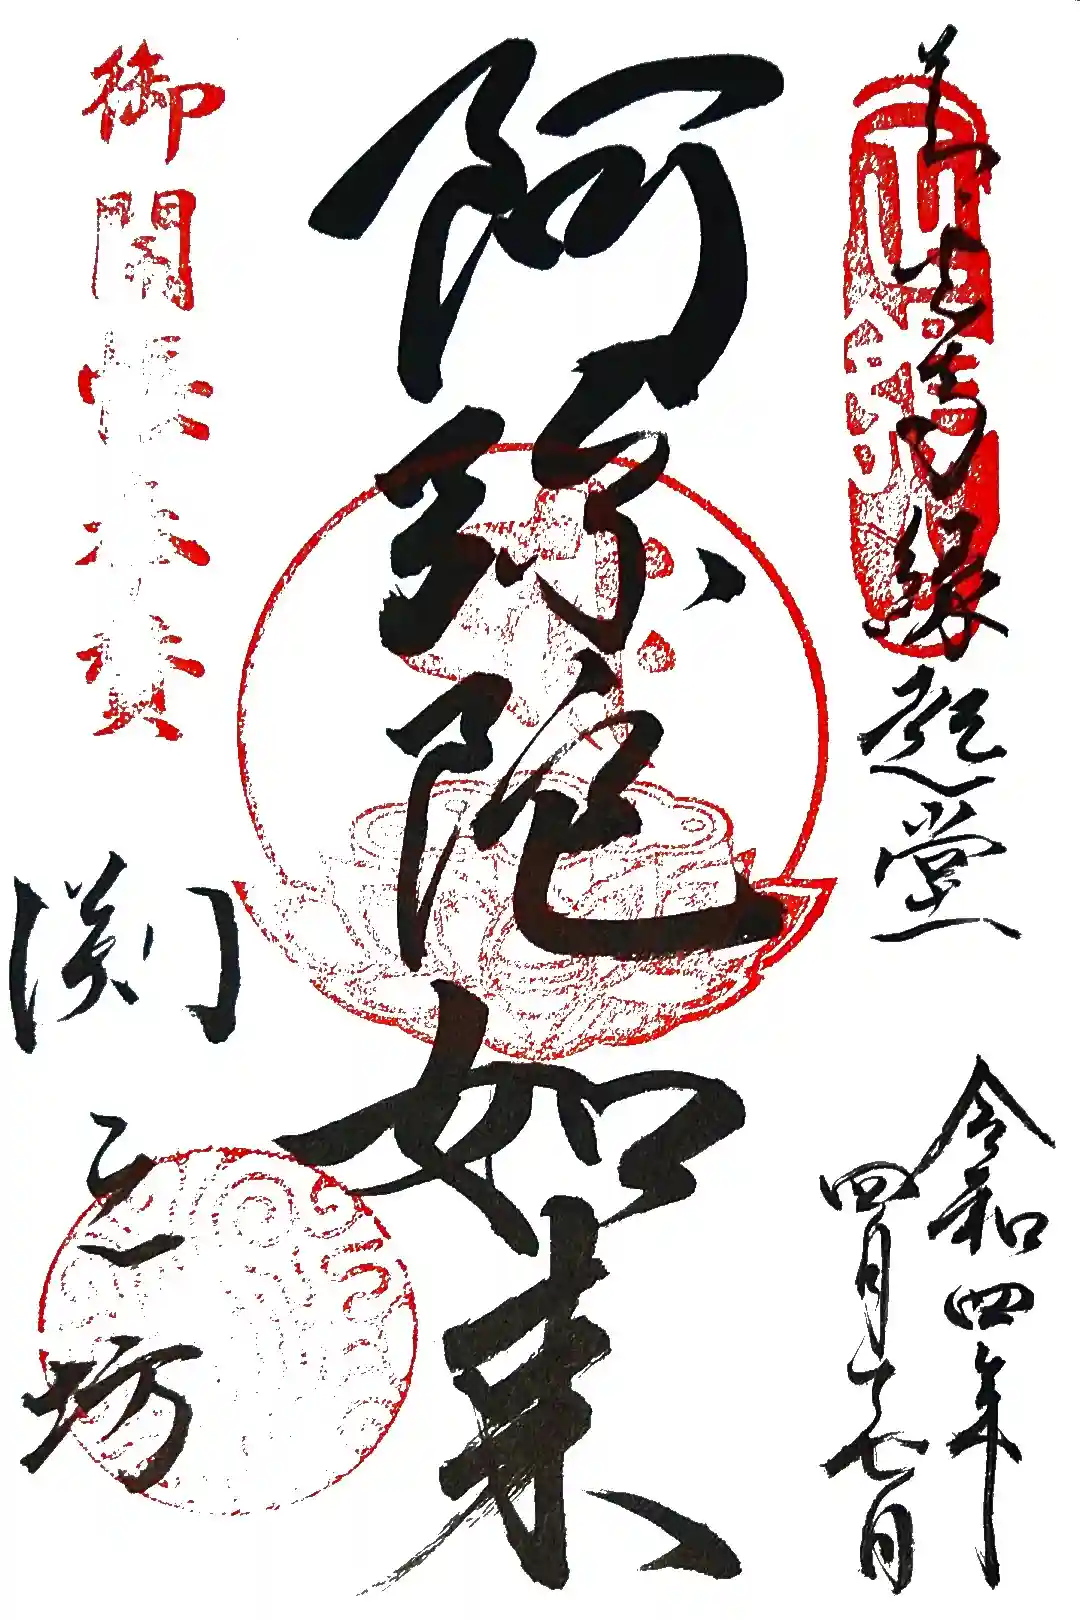 善光寺縁起堂
令和四年
四月十七日
阿弥陀如来
御開帳奉賛
渕之坊